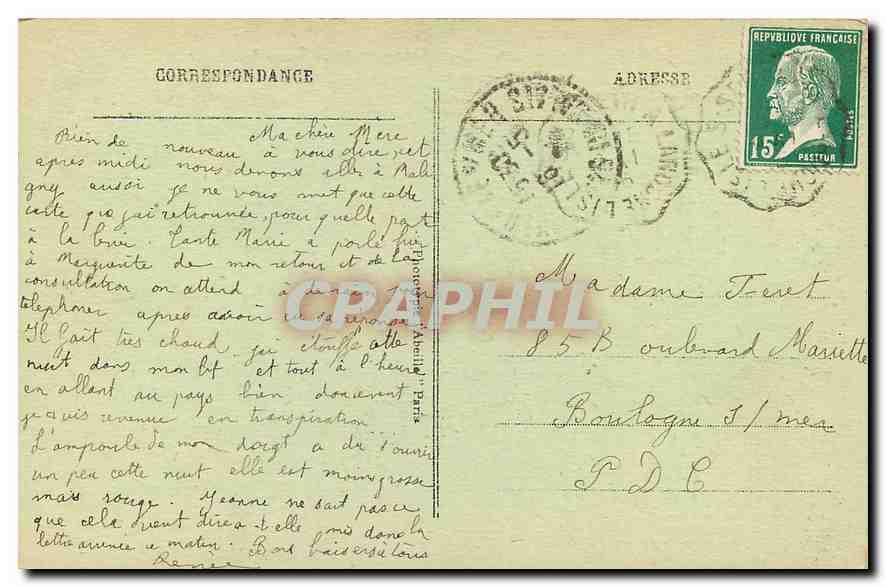 CORRESPONDANCE
Ma chère Mère
Bien de nouveau à vous dire cet
après midi nous devons aller à Mali
gny aussi je ne vous met que cette
carte que j'ai retrouvée, pour qu'elle part
à la levée. Tante Marie a parlé hier
à Marguerite de mon retour et de la
consultation on attend à demain pour
telephoner après avoir eu sa réponse
Il fait très chaud j'ai étouffé cette
nuit dans mon lit et tout à l'heure
en allant au pays bien doucement
je suis revenue en transpiration
L'ampoule de mon doigt a dû s'ouvrir
un peu cette nuit elle est moins grosse
mais rouge. Jeanne ne sait pas ce
que cela veut dire a-t-elle mis dans la
lettre arrivée ce matin. Bons baisers à tous
Renée
Phototypie "Abeille" Paris
ADRESSE
REPVBLIQVE FRANÇAISE
15c
POSTES
PASTEUR
Madame Feret
85 Boulevard Mariette
Boulogne s/mer
P D C
CPAPHIL